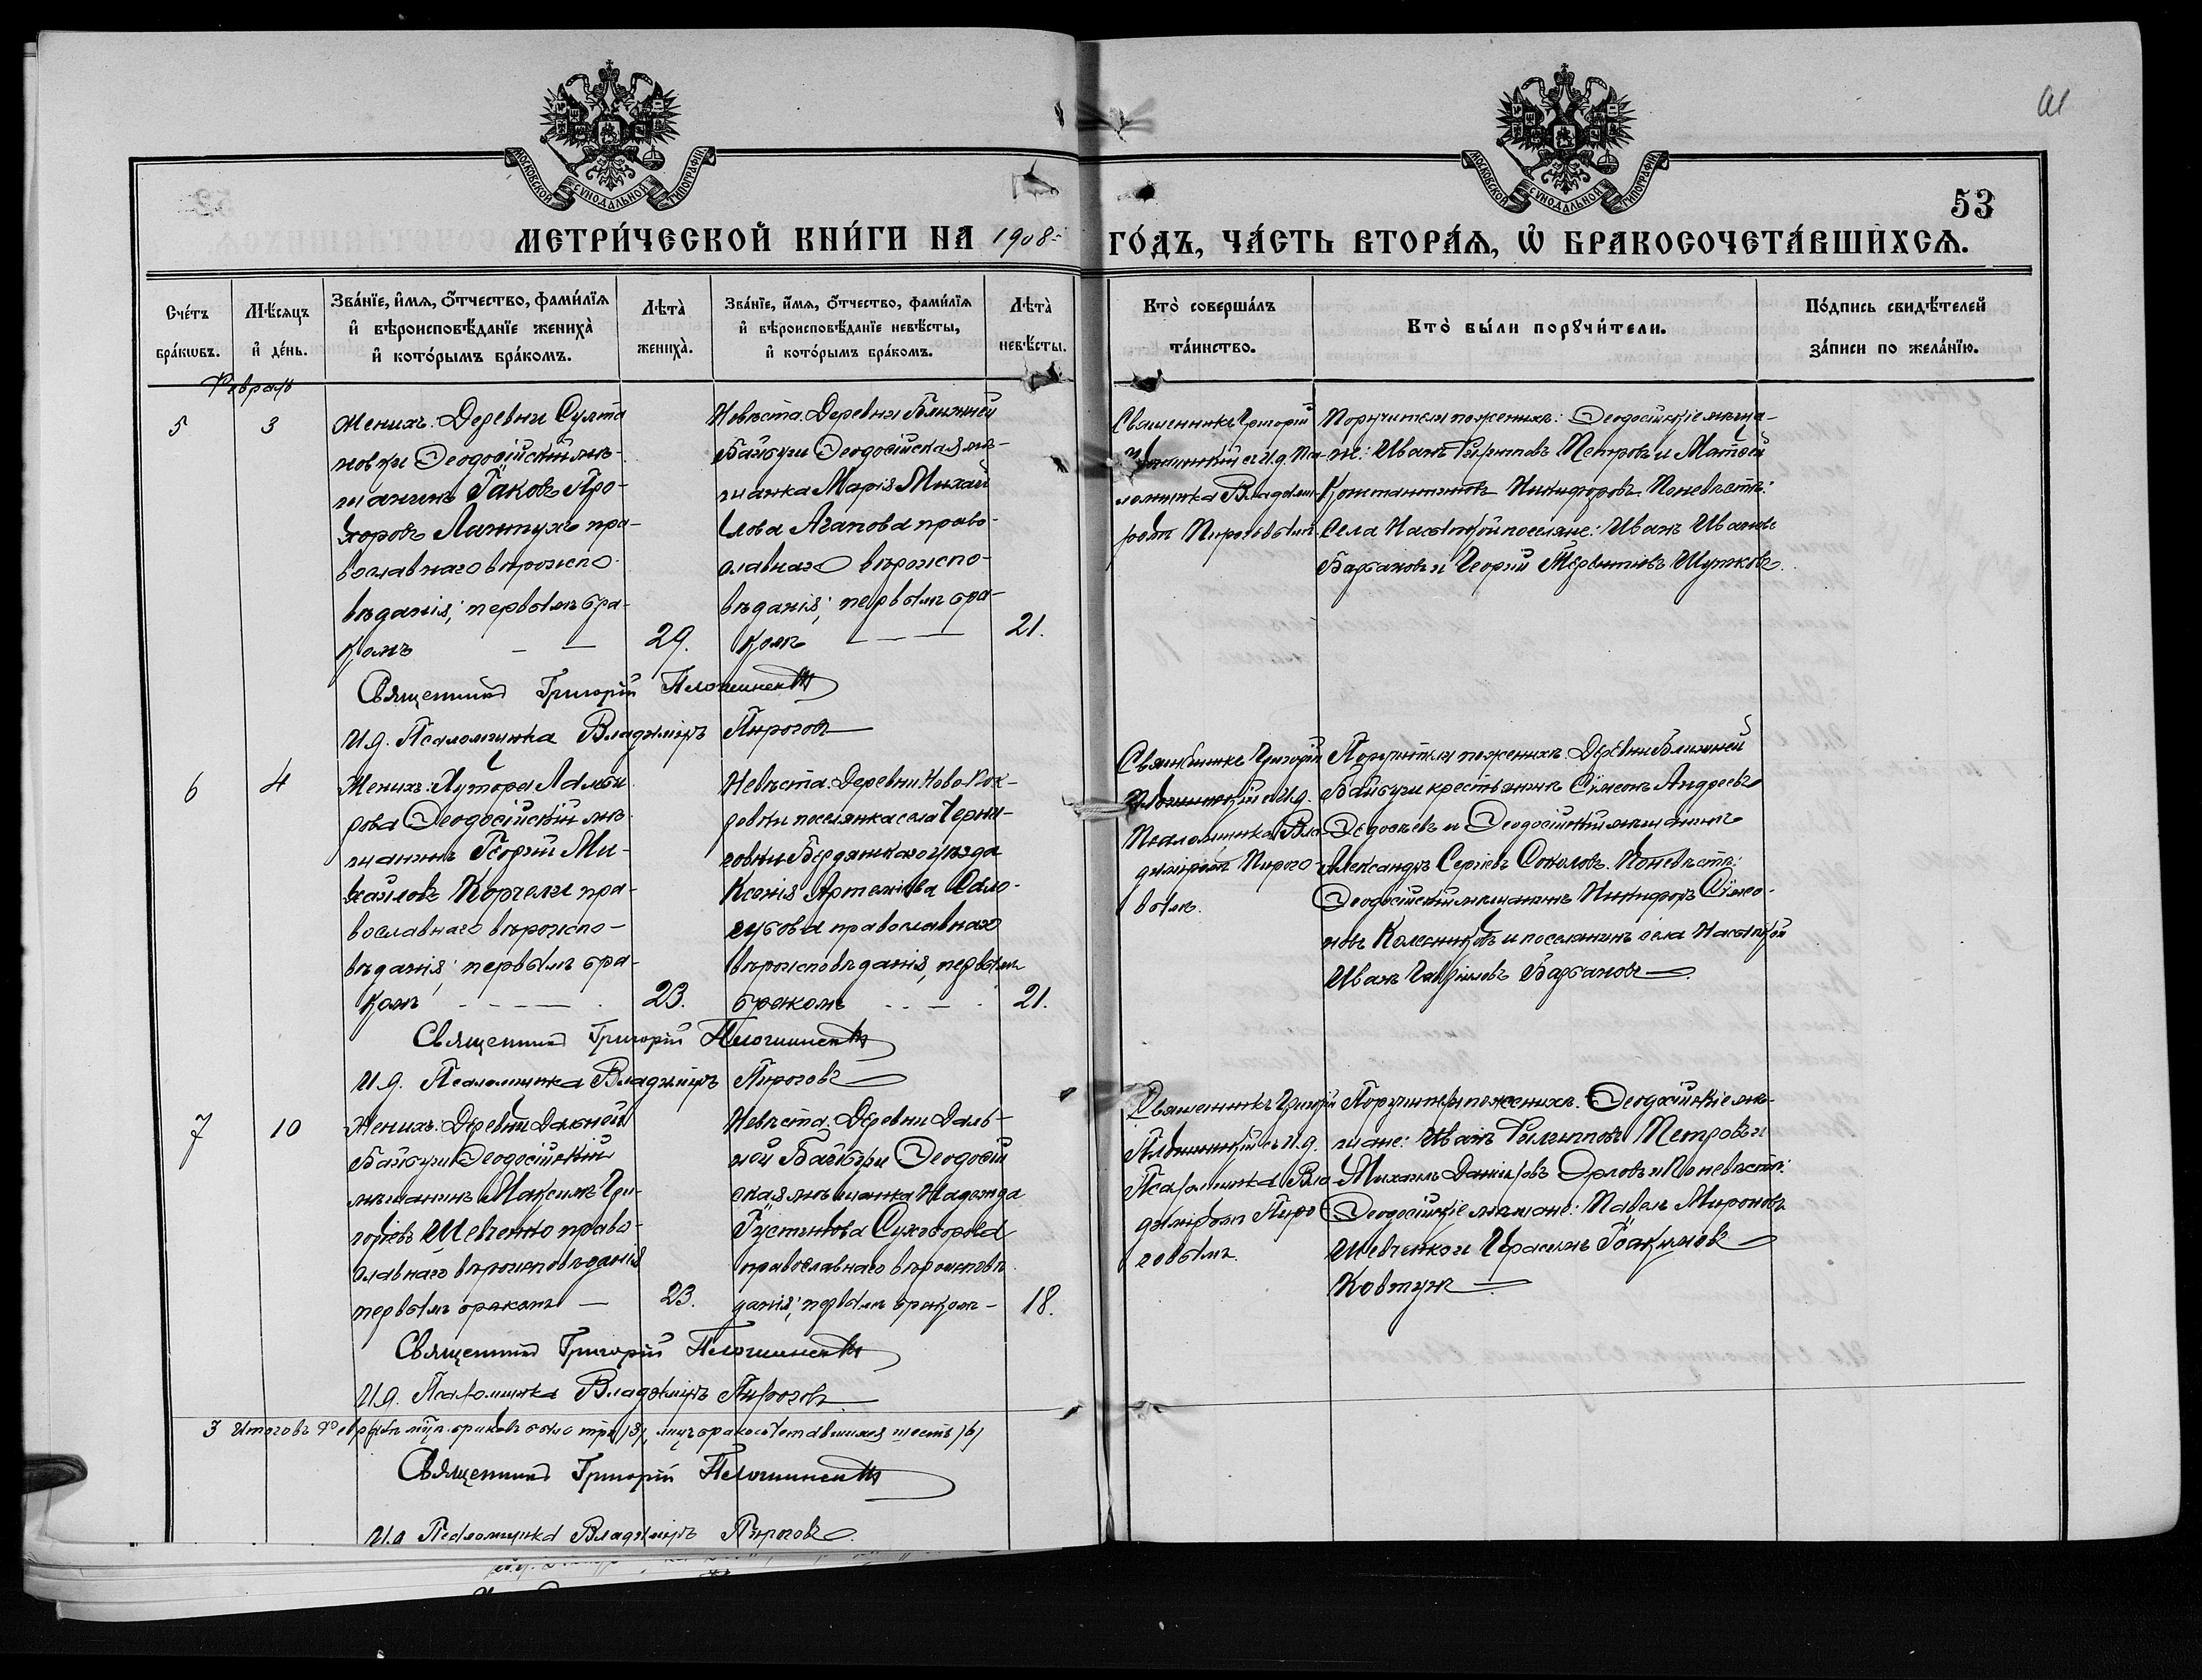 МОСКОВСКОЙ СѴНОДАЛЬНОЙ ТИПОГРАФІИ.
МОСКОВСКОЙ СѴНОДАЛЬНОЙ ТИПОГРАФІИ.
53
МЕТРИ́ЧЕСКОЙ КНИ́ГИ НА 1908
ГО́ДЪ, ЧА́СТЬ ВТОРА́Ѧ, Ѡ БРАКОСОЧЕТА́ВШИХСѦ.
Сче́тъ бра́кѡвъ.
Мѣ́сяцъ и де́нь.
Зва́нїе, и́мя, ѻ́тчество, фами́лїя и вѣроисповѣ́данїе жениха̀ и кото́рымъ бра́комъ.
Лѣта̀ жениха̀.
Зва́нїе, и́мя, ѻ́тчество, фами́лїя и вѣроисповѣ́данїе невѣ́сты, и кото́рымъ бра́комъ.
Лѣта̀ невѣ́сты.
Кто̀ соверша́лъ та́инство.
Кто̀ бы́ли порꙋчи́тели.
По́дпись свидѣ́телей за́писи по жела́нїю.
Февраль
5
3
Женихъ: Деревни Султа
новки Ѳеодосійскій мѣ-
щанинъ Іаковъ Про-
хоровъ Лантухъ пра-
вославнаго вѣроиспо-
вѣданія; первымъ бра-
комъ
29.
Невѣста: Деревни Ближней
Байбуги Ѳеодосійская мѣ-
щанка Марія Михай
лова Агапова право-
славнаго вѣроиспо-
вѣданія; первымъ бра-
комъ
21.
Священникъ Григорій
съ И.д. Пса-
ломщика Владимі-
ромъ Пироговымъ.
Поручители по женихѣ: Ѳеодосійскіе мѣща-
не: Иванъ Филипповъ Петровъ и Матѳей
Константиновъ Никифоровъ. По невѣстѣ:
Села Насыпкой поселяне: Иванъ Ивановъ
Барбановъ и Георгій Терентіевъ Шутковъ.
Священникъ Григорій
И.д. Псаломщика Владиміръ Пироговъ
6
4
Женихъ: Хутора
Ѳеодосійскій мѣ-
щанинъ Георгій Ми-
хайловъ Корчели пра-
вославнаго вѣроиспо-
вѣданія; первымъ бра-
комъ
23.
Невѣста: Деревни Ново-Пок-
ровки поселянка села Черни-
говки Бердянскаго уѣзда
Ксенія Артеміева Само-
губова православнаго
вѣроисповѣданія, первымъ
бракомъ
21.
Священникъ Григорій
съ И.д.
Псаломщика Вла-
диміромъ Пирого-
вымъ.
Поручители по женихѣ: Деревни Ближней
Байбуги крестьянинъ Сѵмеонъ Андреевъ
Ѳедосѣевъ и Ѳеодосійскій мѣщанинъ
Александръ Сергіевъ Соколовъ. По невѣстѣ:
Ѳеодосійскій мѣщанинъ Никифоръ Сѵмео-
новъ Колесниковъ и поселянинъ села Насыпкой
Иванъ Гавріиловъ Барбановъ
Священникъ Григорій
И.д. Псаломщика Владиміръ Пироговъ
7
10
Женихъ: Деревни Дальней
Байбуги Ѳеодосійскій
мѣщанинъ Максимъ Гри-
горіевъ Шевченко право-
славнаго вѣроисповѣданія
первымъ бракомъ
23.
Невѣста: Деревни Даль-
ней Байбуги Ѳеодосій
ская мѣщанка Надежда
Іустинова Сухоборова
православнаго вѣроисповѣ
данія; первымъ бракомъ
18.
Священникъ Григорій
съ И.д.
Псаломщика Вла-
диміромъ Пиро-
говымъ.
Поручители по женихѣ: Ѳеодосійскіе мѣ-
щане: Иванъ Филипповъ Петровъ и
Михаилъ Даниловъ Орловъ и По невѣстѣ:
Ѳеодосійскіе мѣщане: Павелъ Мироновъ
Шевченко и Герасимъ Іоакимовъ
Ковтунъ
Священникъ Григорій
И.д. Псаломщика Владиміръ Пироговъ
3 Итого въ Февралѣ м-цѣ браковъ было три /3/, лицъ бракосочетавшихся шесть /6/
Священникъ Григорій
И.д Псаломщика Владиміръ Пироговъ